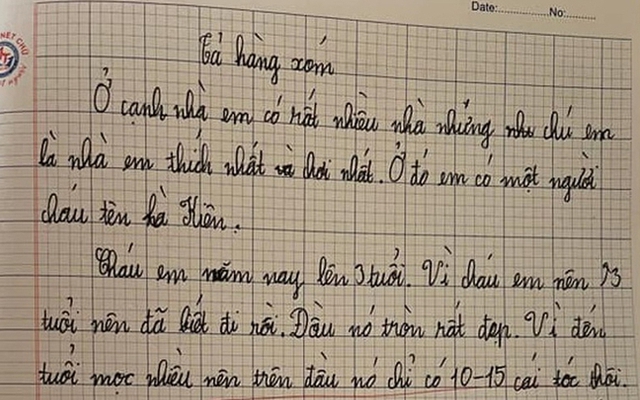 Date:............... No:..........
NÉT CHỮ
Tả hàng xóm
Ở cạnh nhà em có rất nhiều nhà nhưng nhà chú em
là nhà em thích nhất và chơi nhất. Ở đó em có một người
cháu tên là Hiên.
Cháu em năm nay lên 3 tuổi. Vì cháu em nên 3
tuổi nên đã biết đi rồi. Đầu nó tròn rất đẹp. Vì đến
tuổi mọc nhiều nên trên đầu nó chỉ có 10-15 cái tóc thôi.